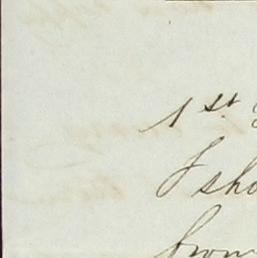 1st
I sho
from